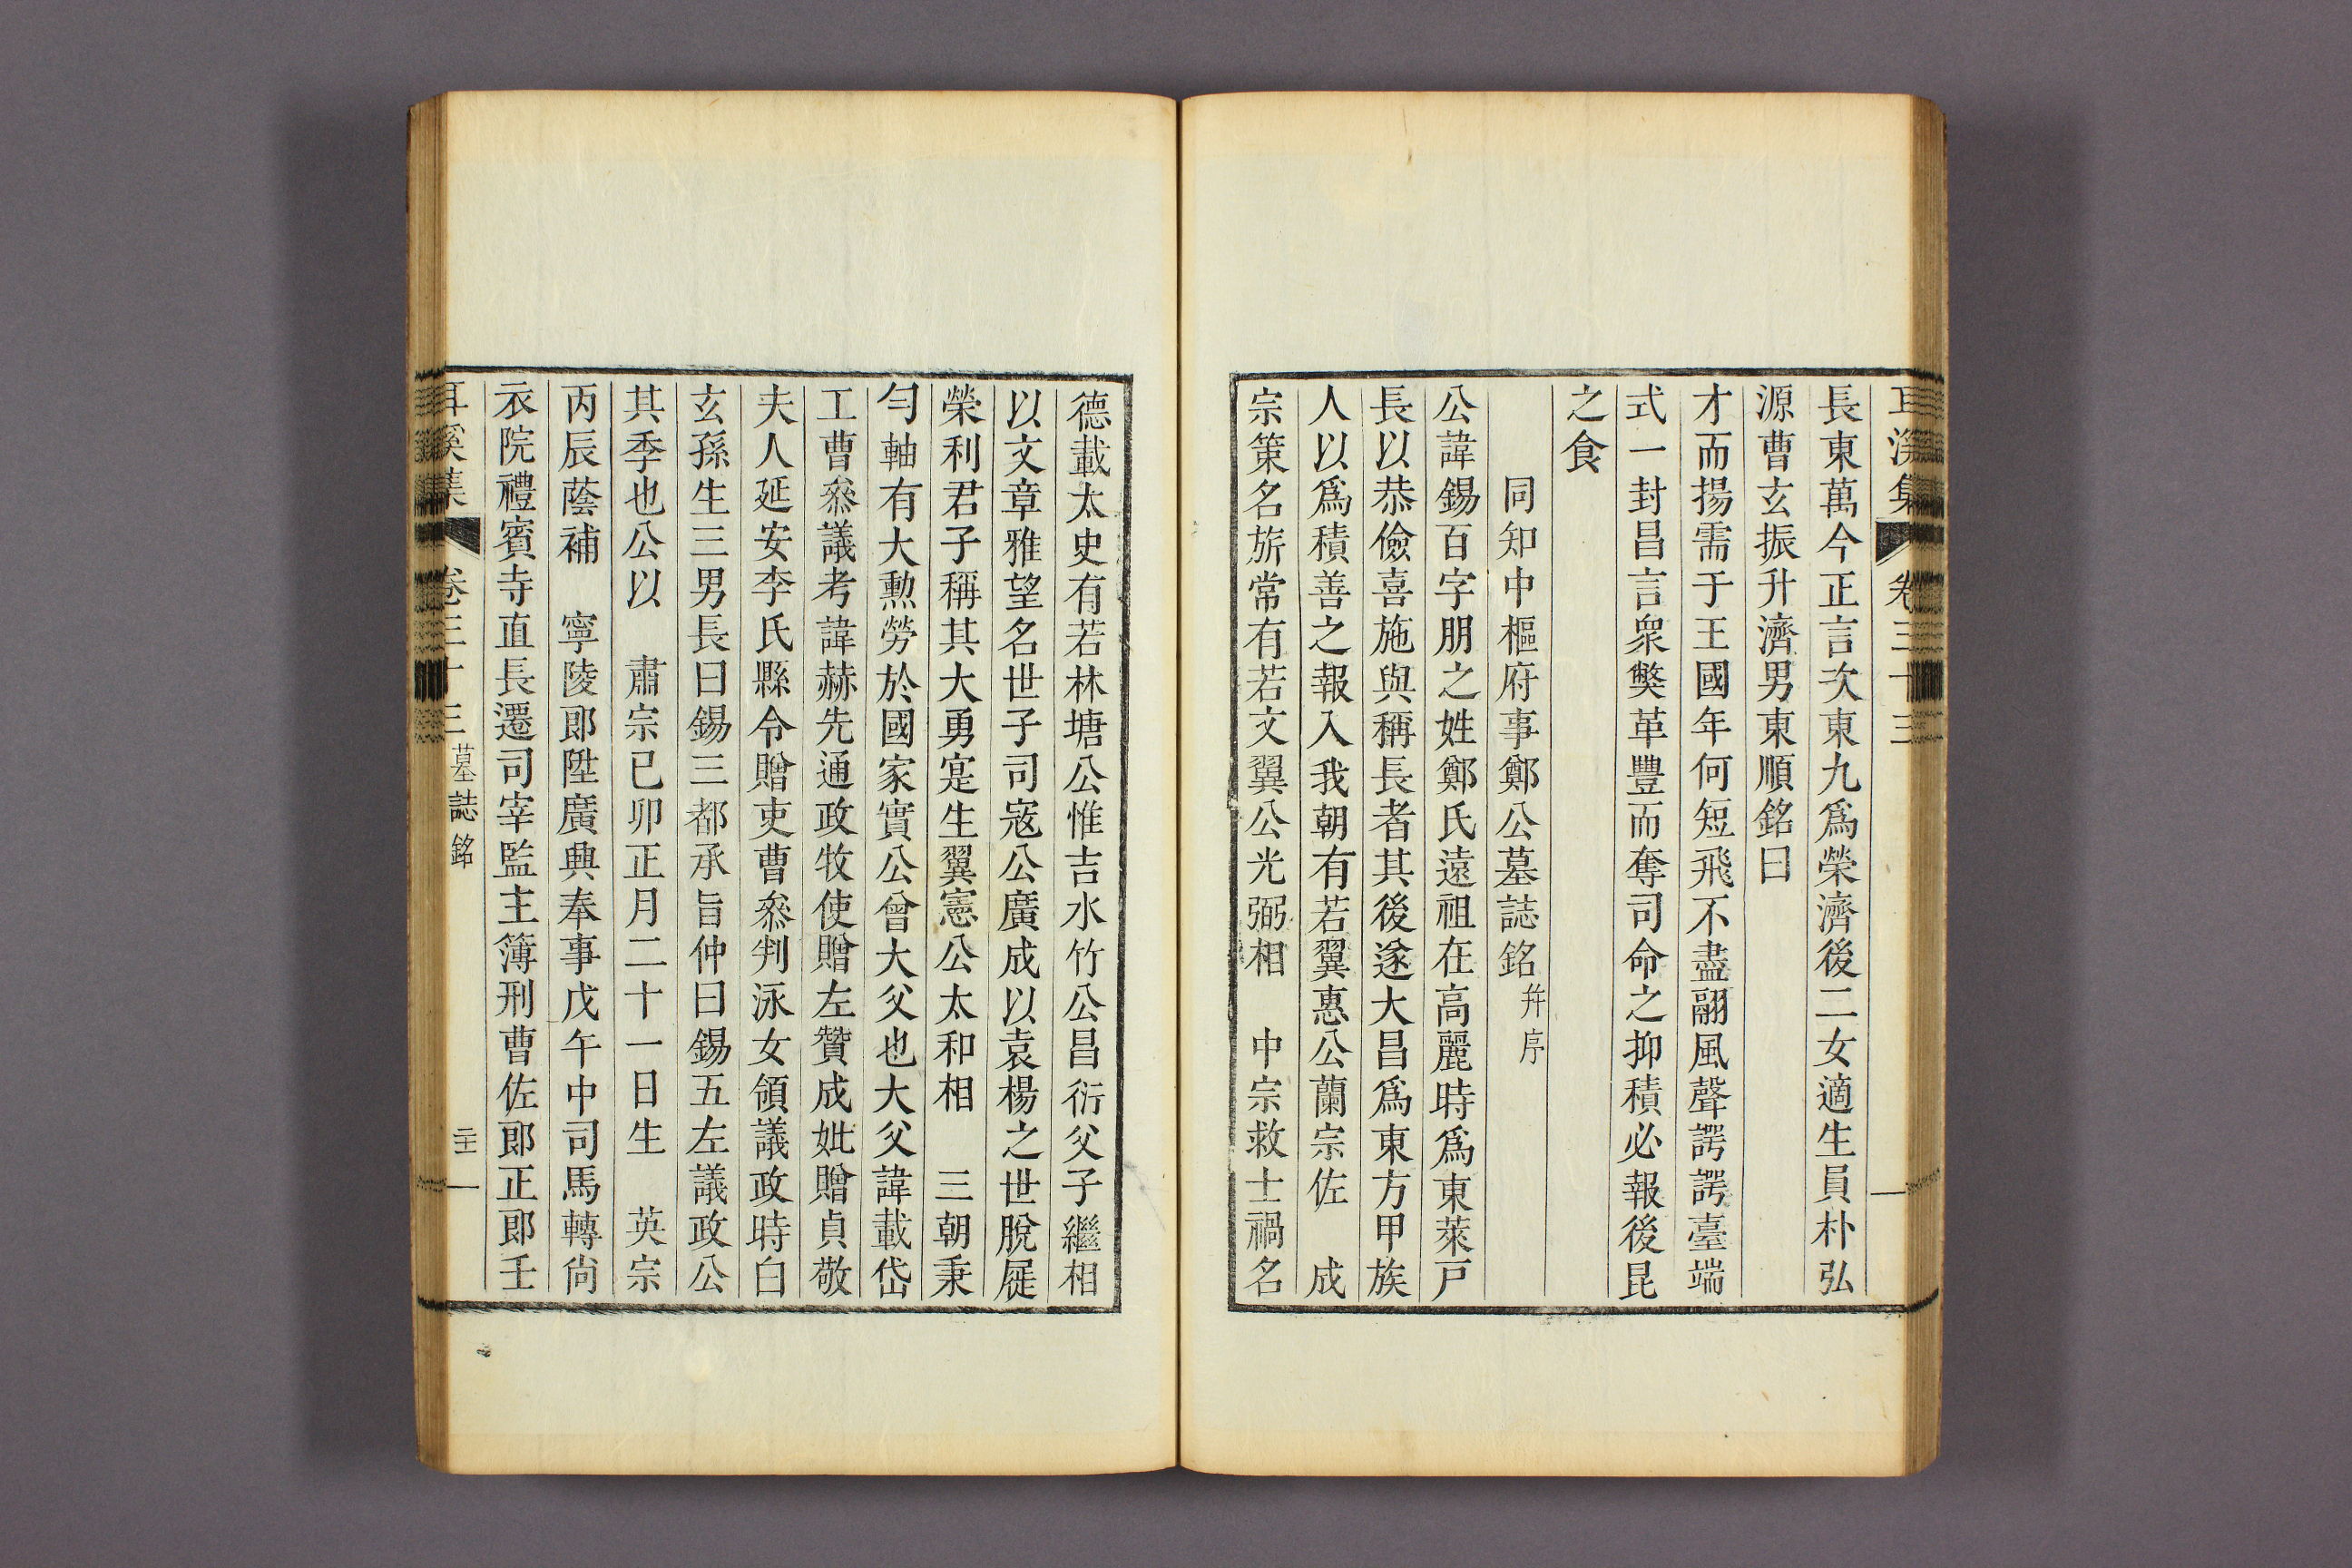 耳溪集 卷三十三
長東萬今正言次東九爲榮濟後二女適生員朴弘
源曹玄振升濟男東順銘曰
才而揚需于王國年何短飛不盡翮風聲諤諤臺端
式一封昌言衆獘革豐而奪司命之抑積必報後昆
之食
同知中樞府事鄭公墓誌銘 幷序
公諱錫百字朋之姓鄭氏遠祖在高麗時爲東萊戶
長以恭儉喜施與稱長者其後遂大昌爲東方甲族
人以爲積善之報入我朝有若翼惠公蘭宗佐 成
宗策名旂常有若文翼公光弼相 中宗救士禍名
德載太史有若林塘公惟吉水竹公昌衍父子繼相
以文章雅望名世子司寇公廣成以袁楊之世脫屣
榮利君子稱其大勇寔生翼憲公太和相 三朝秉
勻軸有大勲勞於國家實公曾大父也大父諱載岱
工曹叅議考諱赫先通政牧使贈左贊成妣贈貞敬
夫人延安李氏縣令贈吏曹叅判泳女領議政時白
玄孫生三男長曰錫三都承旨仲曰錫五左議政公
其季也公以 肅宗己卯正月二十一日生 英宗
丙辰蔭補 寧陵郎陞廣興奉事戊午中司馬轉尙
衣院禮賓寺直長遷司宰監主簿刑曹佐郎正郎壬
耳溪集 卷三十三 墓誌銘 二十